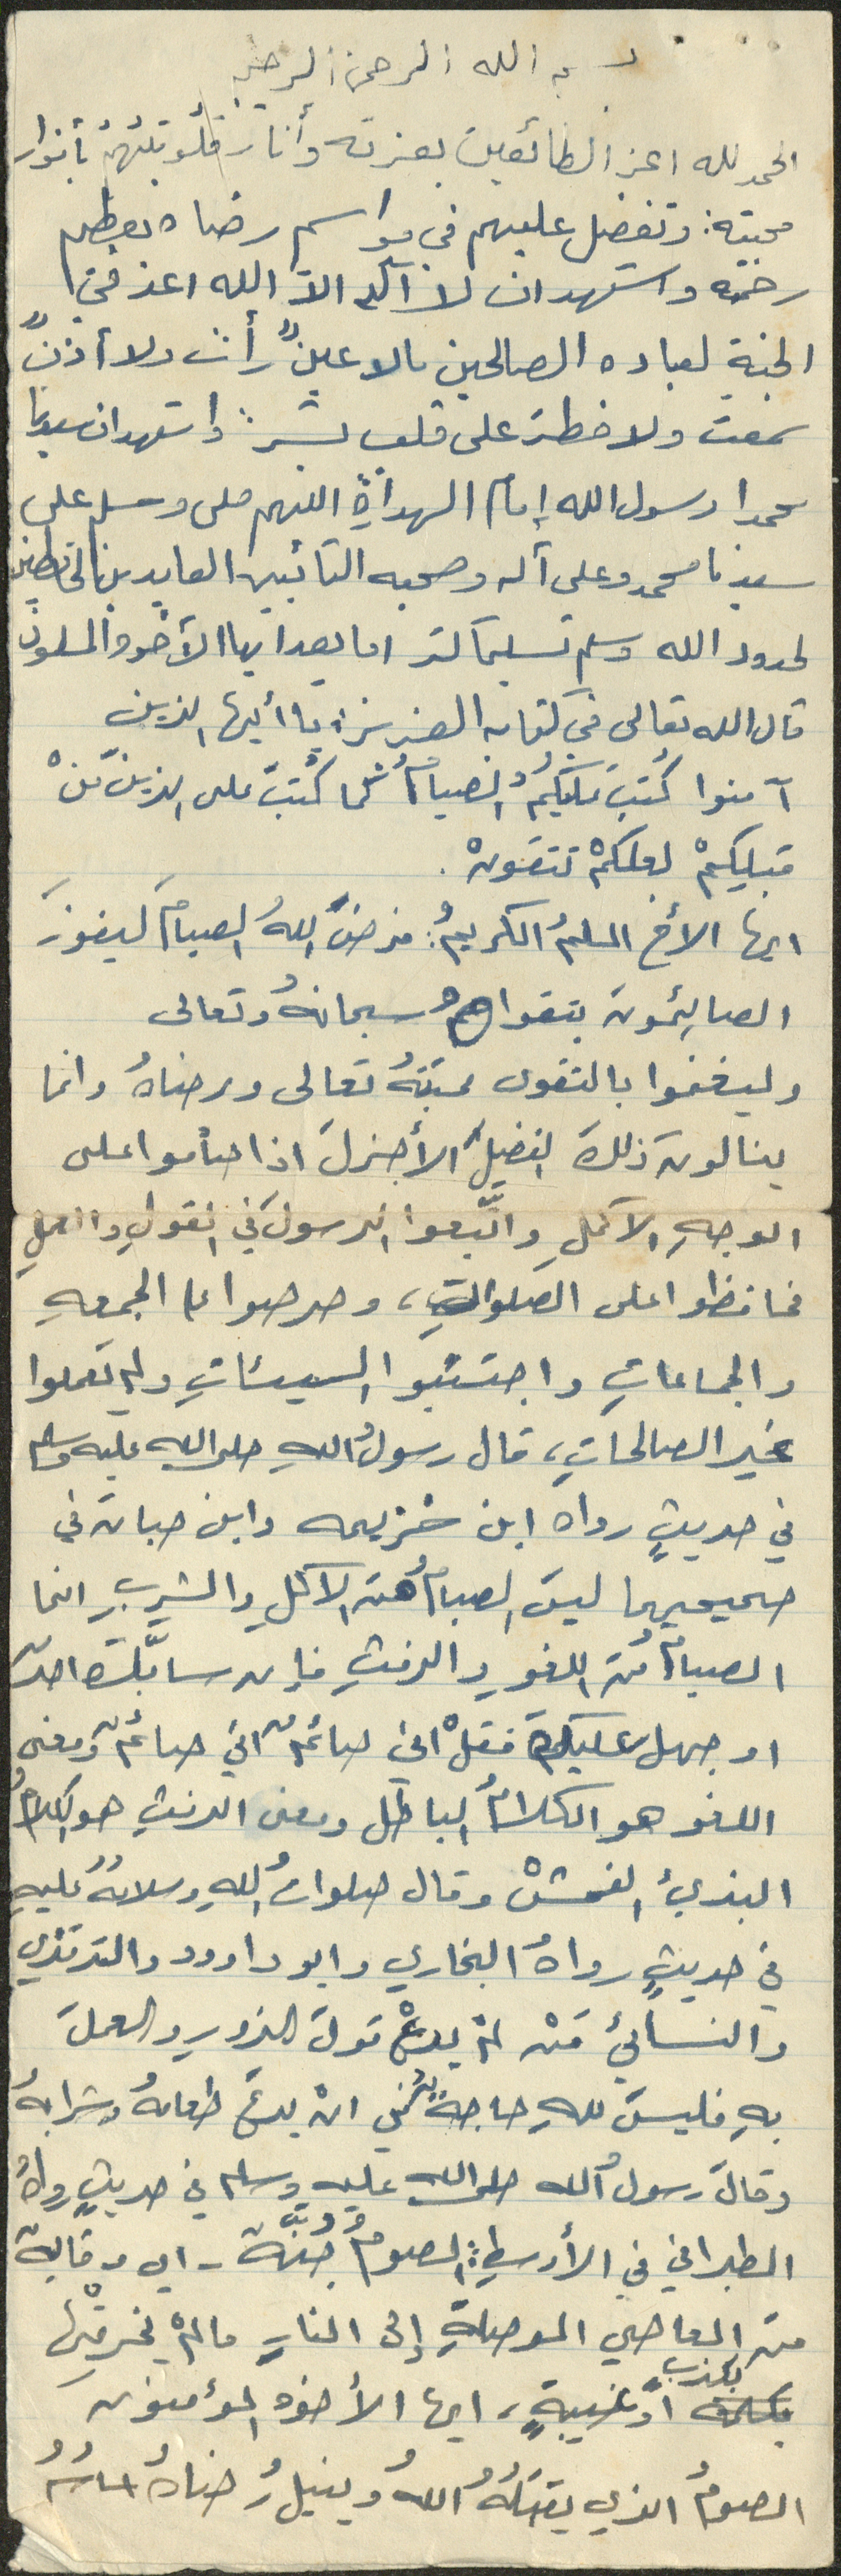 بسم الله الرحمن الرحيم
الحمد لله اعز الطائعين بعزته وأنار قلُوبَهُمْ بأنوار
محبته: وتفضل عليهم في مواسم رضاه بعظيم
رحمته واشهد ان لا اله الا الله اعد في
الجنة لعباده الصالحين مالا عينٌ رأت ولا أذنٌ
سمعت ولا خطر على قلب بشر: واشهد ان سيدنا
محمدا رسول الله إمام الهداةِ اللهم صلى وسلم على
سيدنا محمد وعلى آله وصحبه التائبين العابدين الحافظين
لحدود الله وسلم تسليما كثر اما بعد ايها الأخوة المسلون
قال الله تعالى في كتابه العزيز: يا أيها الذين
آمنوا كُتبَ عَليكمُ الصيامُ كما كُتبَ على الذينَ منْ
قبلِكمْ لعلكمْ تتقونْ.
ايها الأخ المسلمُ الكريمُ: فرضَ اللهُ الصيامَ ليفوزَ
الصائِمُونَ بتقواهُ سبحانهُ وتعالى
وليغنموا بالتقوى محبتهُ تعالى ورضاهُ وانما
ينالونَ ذلكَ الفضلَ الأجزلَ اذا صاموا على
الوجهِ الاكملِ واتَّبعوا الرسولَ في القولِ والعملِ
فحافظوا على الصلواتِ، وحرصوا على الجمعهِ
والجماعاتِ واجتنبوا السيئاتِ ولم تعملوا
غير الصالحاتِ، قال رسولُ اللهِ صلى الله عليه وسلم
في حديثٍ رواه ابن خزيمه وابن حبانَ في
صحيحيهما ليسَ الصيامُ منَ الاكلِ والشربِ انما
الصيامُ منَ اللغوِ والرفثِ فإن سابَّكَ احدٌ
او جهل عليكَ فقلْ اني صائمٌ اني صائمٌ ومعنى
اللغو هو الكلامُ الباطل ومعنى الرفثِ هو الكلامُ
البذيُ الفحشْ وقال صلواتُ اللهِ وسلامهُ عليهِ
في حديثٍ رواهُ البخاري وابو داوود والترمذي
والنسائيُ مَنْ لمْ يدعْ قولَ الزورِ والعملَ
بهِ فليسَ للهِ حاجةٌ في انْ يدعَ طعامهُ وشرابهُ
وقالَ رسولُ الله صلى الله عليهِ وسلم في حديثٍ رواهُ
الطبراني في الأوسطِ: الصومُ جُنَّة - اي وقاية
من المعاصي الموصلةِ إلى النارِ مالمْ يخرقْها
بكذبٍ او غيبةٍ، ايها الأخوه المؤمنون
الصومُ الذي يقبَلُهُ اللهُ وينيلُ رُضاهُ